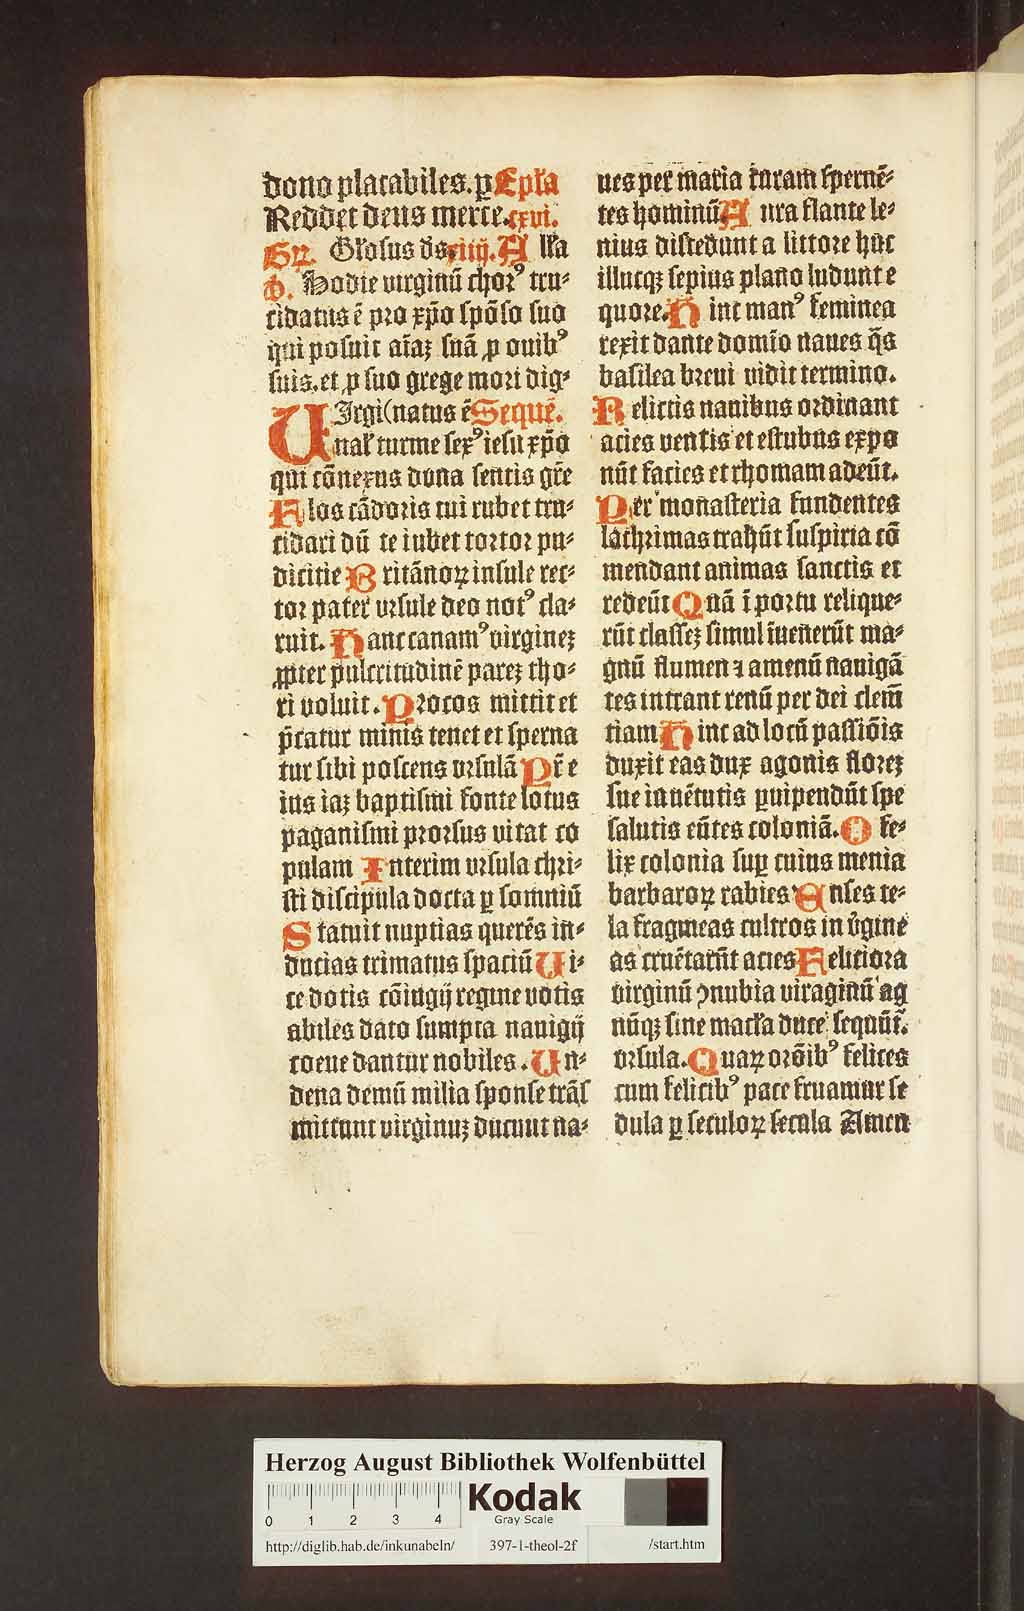 dono placabiles. ꝑ Epl̄a
Reddet deus merce. cxvi.
Gr̄. Gl̓osus ds̄. xiiij. Allʼa
v̓. Hodie virginū chorꝰ tru⸗
cidatus ē pro xp̄o spōso suo
qui posuit aīaꝫ suā ꝓ ouibꝰ
suis. et ꝓ suo grege mori dig⸗
VIrgi(natus ē Sequē.
nal̓ turme sexꝰ iesu xp̄o
qui cōnexus dona sentis gr̄e
Flos cādoris tui rubet tru⸗
cidari dū te iubet tortor pu⸗
dicitie Britānoꝝ insule rec⸗
tor pater vrsule deo notꝰ cla⸗
ruit. Hanc canamꝰ virgineꝫ
ꝓpter pulcritudinē pareꝫ tho⸗
ri voluit. Procos mittit et
p̄catur minis tenet et sperna
tur sibi poscens vrsulā Pr̄ e
ius iaꝫ baptismi fonte lotus
paganismi prorsus vitat co
pulam Interim vrsula chri⸗
sti discipula docta ꝑ somniū
Statuit nuptias querēs in⸗
ducias trimatus spaciū Ui⸗
ce dotis cōiugij regine votis
abiles dato sumpta nauigij
coeue dantur nobiles. Un⸗
dena demū milia sponse trās
mittunt virginuꝫ ducunt na⸗
ues per maria furam spernē⸗
tes hominū Aura flante le⸗
nius discedunt a littore huc
illucqꝫ sepius plano ludunt e
quore. Hinc manꝰ feminea
rexit dante domīo naues q̄s
basilea breui vidit termino.
Relictis nauibus ordinant
acies ventis et estubus expo
nūt facies et rhomam adeūt.
Per monasteria fundentes
lachrimas trahūt suspiria cō
mendant animas sanctis et
redeūt Quā ī portu relique⸗
rūt classeꝫ simul īuenerūt ma⸗
gnū flumen ⁊ amenū nauigā
tes intrant renū per dei clem̄
tiam Hinc ad locū passiōis
duxit eas dux agonis floreꝫ
sue iuuētutis ꝑuipendūt spe
salutis eūtes coloniā. O fe⸗
lix colonia suꝑ cuius menia
barbaroꝝ rabies Enses te⸗
la frageas cultros in v̓gine
as cruētarūt acies Feliciora
virginū ꝯnubia viraginū ag
nūqꝫ sine macl̓a duce sequūt̄.
vrsula. Quaꝝ orōibꝰ felices
cum felicibꝰ pace fruamur se
dula ꝑ seculoꝝ secula Amen
Herzog August Bibliothek Wolfenbüttel
0 1 2 3 4
Kodak
Gray Scale
http://diglib.hab.de/inkunabeln/ 397-1-theol-2f /start.htm